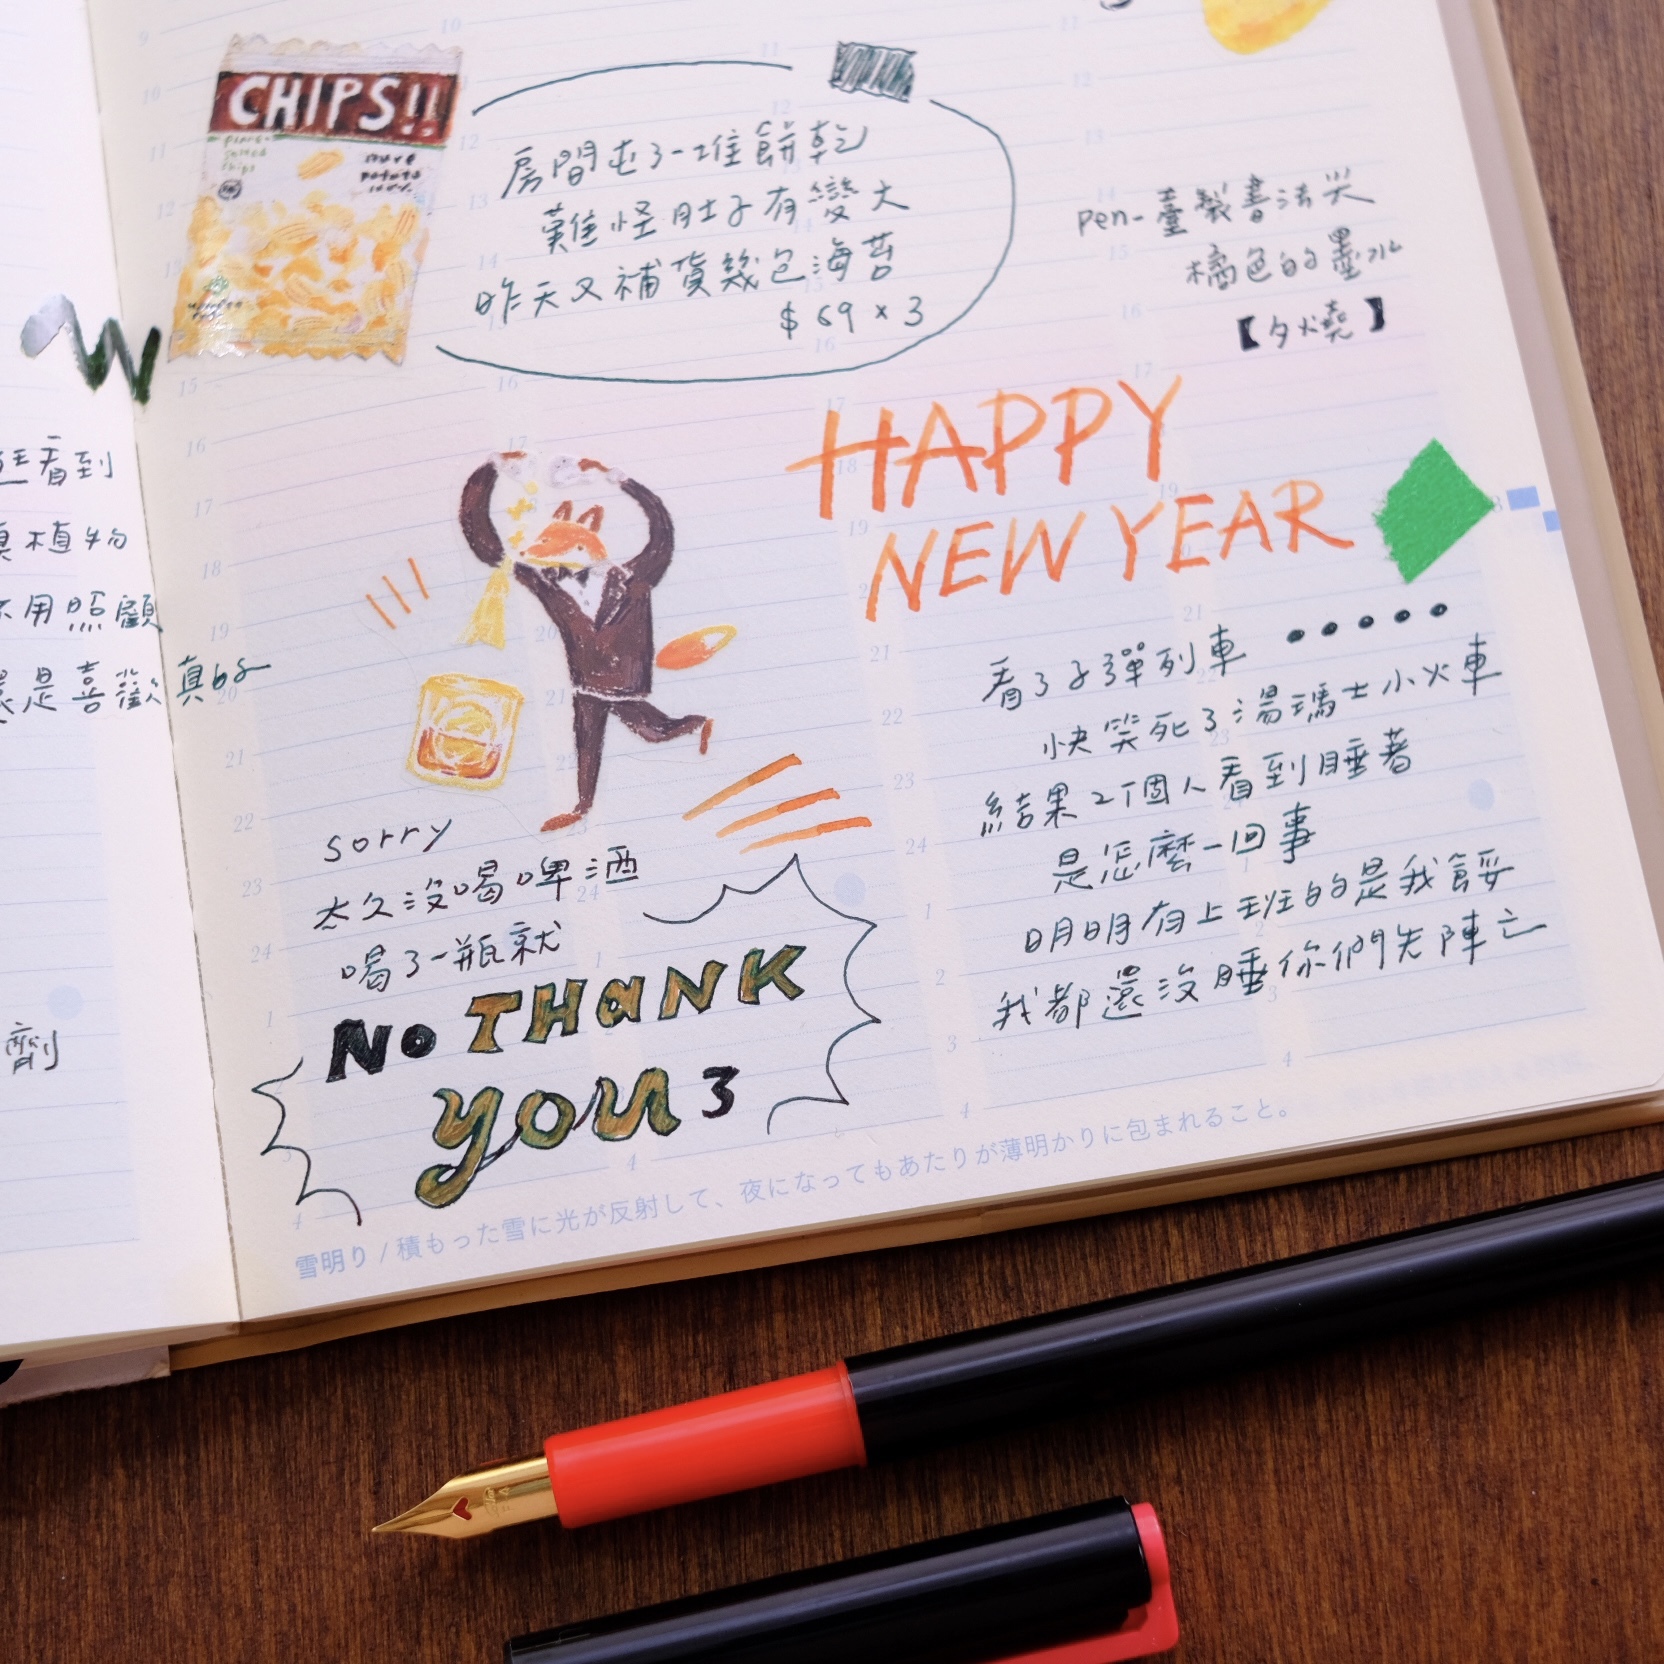 CHIPS!!
房間屯了一堆餅乾
難怪肚子有變大
昨天又補貨幾包海苔
$69×3
pen-臺製書法尖
橘色的墨水
【夕燒】
看到
植物
用照顧
還是喜歡真的
劑
HAPPY
NEW YEAR
sorry
太久沒喝啤酒
喝了一瓶就
NO THANK
YOU了
看了子彈列車 •••••
快笑死了湯瑪士小火車
結果2個人看到睡著
是怎麼一回事
明明有上班的是我餒
我都還沒睡你們先陣亡
雪明り / 積もった雪に光が反射して、夜になってもあたりが薄明かりに包まれること。